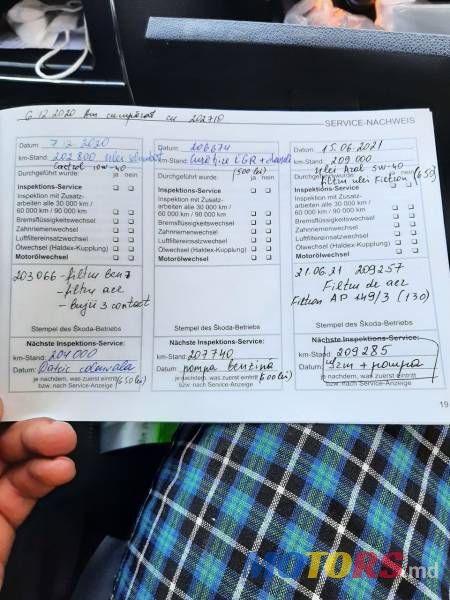 6.12.2020 Am cumpărat cu 202710
SERVICE-NACHWEIS
Datum 7.12.2020
km-Stand: 202800 ulei schimbat
Castrol 10W-40
Durchgeführt wurde: ja nein
Inspektions-Service
Inspektion mit Zusatz-
arbeiten alle 30 000 km /
60 000 km / 90 000 km
Bremsflüssigkeitswechsel
Zahnriemenwechsel
Luftfiltereinsatzwechsel
Ölwechsel (Haldex-Kupplung)
Motorölwechsel
203066 - filtru
- filtru aer
- bujii 3 contact
Stempel des Škoda-Betriebs
Nächste Inspektions-Service:
km-Stand: 204000
Datum:
je nachdem, was zuerst eintritt
(650 lei)
bzw. nach Service-Anzeige
Datum 206674
km-Stand: EGR +
(500 lei)
Durchgeführt wurde: ja nein
Inspektions-Service
Inspektion mit Zusatz-
arbeiten alle 30 000 km /
60 000 km / 90 000 km
Bremsflüssigkeitswechsel
Zahnriemenwechsel
Luftfiltereinsatzwechsel
Ölwechsel (Haldex-Kupplung)
Motorölwechsel
Stempel des Škoda-Betriebs
Nächste Inspektions-Service:
km-Stand: 207740
Datum: pompa bentină
je nachdem, was zuerst eintritt
(600 lei)
bzw. nach Service-Anzeige
Datum 15.06.2021
km-Stand: 209000
ulei Aral 5W-40
Durchgeführt wurde: filtru ulei Filtron (650)
Inspektions-Service
Inspektion mit Zusatz-
arbeiten alle 30 000 km /
60 000 km / 90 000 km
Bremsflüssigkeitswechsel
Zahnriemenwechsel
Luftfiltereinsatzwechsel
Ölwechsel (Haldex-Kupplung)
Motorölwechsel
21.06.21 209257
Filtru de aer
Filtron AP 149/3 (130)
Stempel des Škoda-Betriebs
Nächste Inspektions-Service:
km-Stand: 209285
Datum: + pompa
je nachdem, was zuerst eintritt
bzw. nach Service-Anzeige
19
MOTORS.md